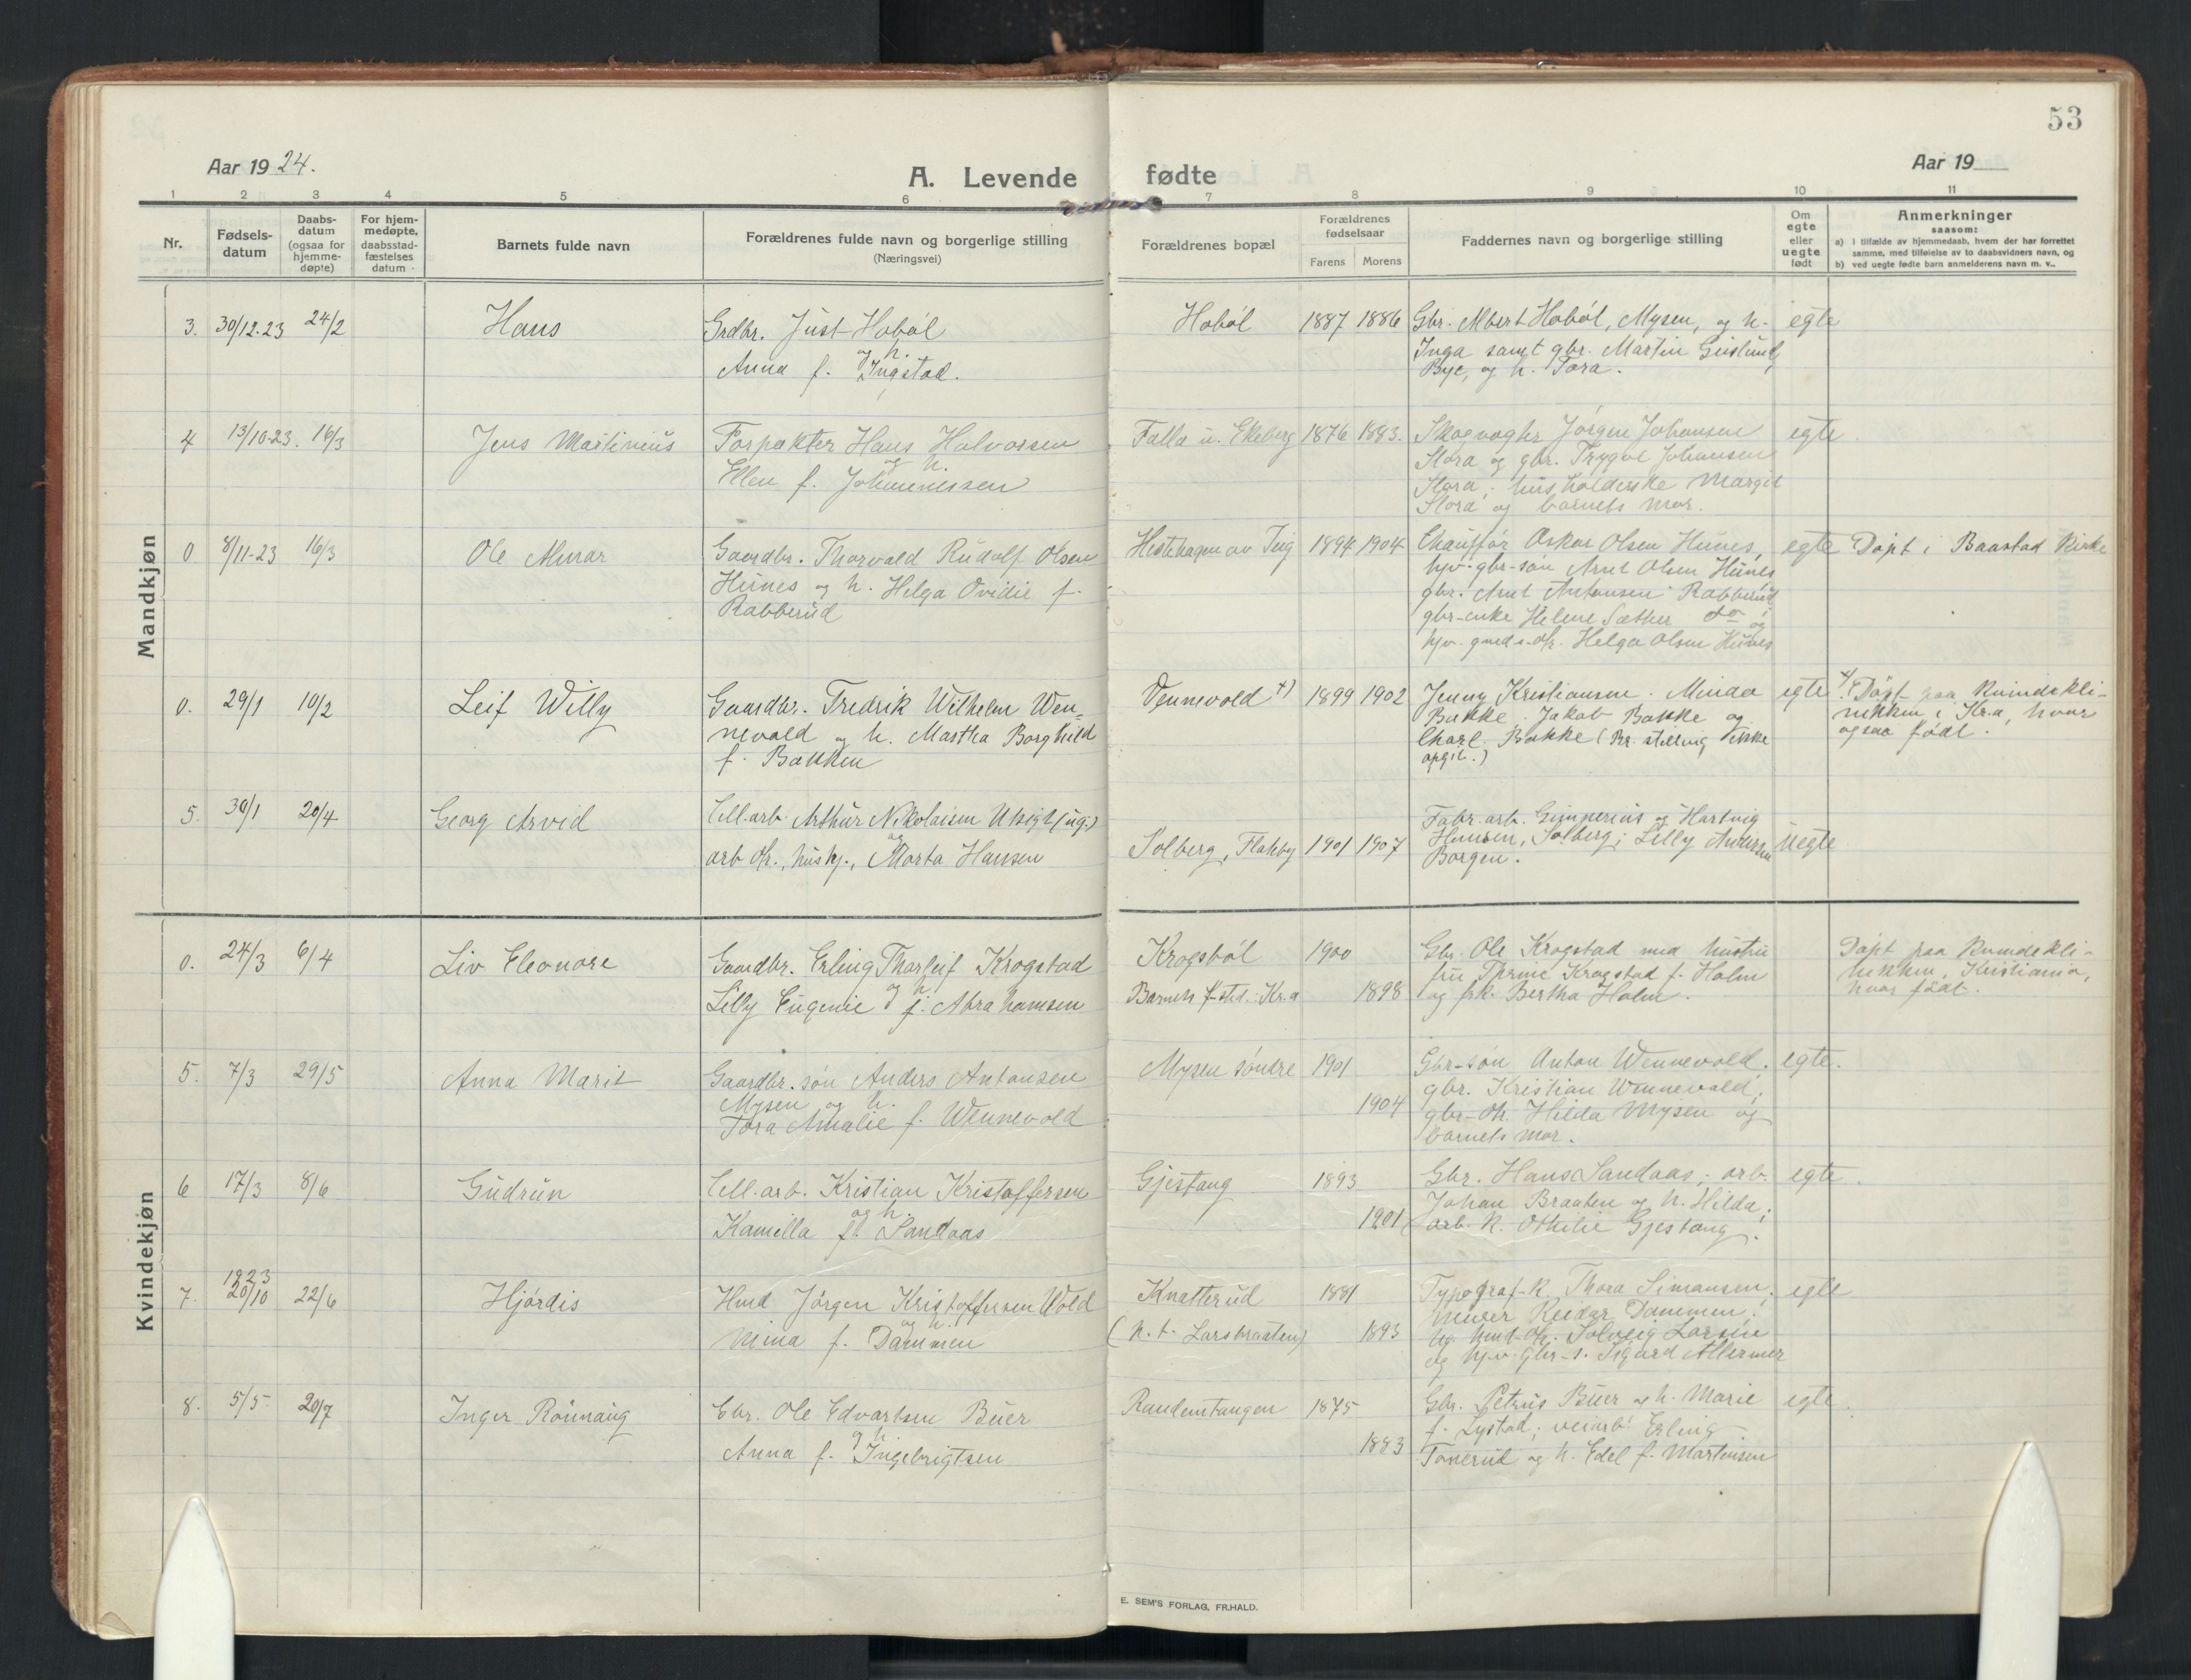 53
Aar 19 24.
A. Levende fødte
Aar 19
1 2 3 4 5 6 7 8 9 10 11
Nr.
Fødsels-
datum
Daabs-
datum
(ogsaa for
hjemme-
døpte)
For hjem-
medøpte,
daabsstad-
fæstelses
datum
Barnets fulde navn
Forældrenes fulde navn og borgerlige stilling
(Næringsvei)
Forældrenes bopæl
Forældrenes
fødselsaar
Farens Morens
Faddernes navn og borgerlige stilling
Om
egte
eller
uegte
født
Anmerkninger
saasom:
a) i tilfælde av hjemmedaab, hvem der har forrettet
samme, med tilføielse av to daabsvidners navn, og
b) ved uegte fødte barn anmelderens navn m. v..
Mandkjøn
3. 30/12.23 24/2 Hans
Grdbr. Just Hobøl
og h.
Anna f. Ingstad.
Hobøl 1887 1886
Gbr. Albert Hobøl, Mysen, og h.
Inga samt gbr. Martin Grislund,
Bye, og h. Tora.
egte
4 13/10-23. 16/3 Jens Martinius
Forpakter Hans Halvorsen
og h.
Ellen f. Johannessen
Falla u. Ekeberg 1876 1883.
Skogvogter Jørgen Johansen
Slora og gbr. Trygve Johansen
Slora; husholderske Margit
Slora og barnets mor.
egte.
0 8/11-23 16/3 Ole Alnar
Gaardbr. Thorvald Rudolf Olsen
Hunes og h. Helga Ovidie f.
Rabberud
Hestehagen av Ing 1894 1904
Chauffør Oskar Olsen Hunes,
hjv. gbr-søn Arnt Olsen Hunes
gbr. Arnt Antonsen Rabberud
gbr-enke Helene Sæther do og
hjv. gmds-dtr. Helga Olsen Hunes
egte
Døpt i Baastad Kirke
0. 29/1 10/2 Leif Willy
Gaardbr. Fredrik Wilhelm Wen-
nevold og h. Martha Borghild
f. Bakken
Vennevold +) 1899 1902
Jenny Kristiansen. Minda
Bakke. Jakob Bakke og
Charl. Bakke (Br. stilling ikke
opgit.)
egte
+) Døpt paa Kvindekli-
nikken i Kr.a, hvor
ogsaa født.
5. 30/1 20/4 Georg Arvid
Cell.arb. Arthur Nikolaisen Utsigt (ug.)
og
arb dtr., hushj., Marta Hansen
Solberg, Flateby 1901 1907
Fabr.arb. Gimperius og Hartvig
Hansen, Solberg; Lilly Andersen
Borgen.
uegte
Kvindekjøn
0. 24/3 6/4 Liv Eleonore
Gaardbr. Erling Thorleif Krogstad
og h.
Lilly Eugenie f. Abrahamsen
Krogsbøl 1900
Barnets f-sted: Kr.a 1898
Gbr. Ole Krogstad med hustru
fru Thrine Krogstad f. Holm
og frk. Bertha Holm.
Døpt paa Kvindekli-
nikken, Kristiania,
hvor født.
5. 7/3 29/5 Anna Marit
Gaardbr.søn Anders Antonsen
Mysen og h.
Tora Amalie f. Wennevold
Mysen søndre 1901
1904
Gbr-søn Anton Wennevold.
gbr. Kristian Wennevold,
gbr-dtr. Hilda Mysen og
barnets mor.
egte.
6 17/3 8/6 Gudrun
Cell.arb. Kristian Kristoffersen
og h.
Kamilla f. Sandaas
Gjestang 1893
1901
Gbr. Hans Sandaas; arb.
Johan Braaten og h. Hilda;
arb. h. Othilie Gjestang.
egte.
7. 1923
20/10 22/6 Hjørdis
Hmd Jørgen Kristoffersen Wold
og h.
Mina f. Dammen
Knatterud 1881
(n. t. Larsbraaten) 1893
Typograf-h. Thora Simonsen,
murer Reidar Dammen;
ug. hmd-dtr. Solveig Larsen
og hjv. gbr-s. Sigurd Allermer
egte
8. 5/5 20/7 Inger Rønnaug
Gbr. Ole Edvartsen Buer
og h.
Anna f. Ingebrigtsen
Raudemtangen 1875
1883
Gbr. Petrus Buer og h. Marie
f. Lystad; veiarb. Erling
Tonerud og h. Edel f. Martinsen
egte.
E. SEM'S FORLAG, FR.HALD.